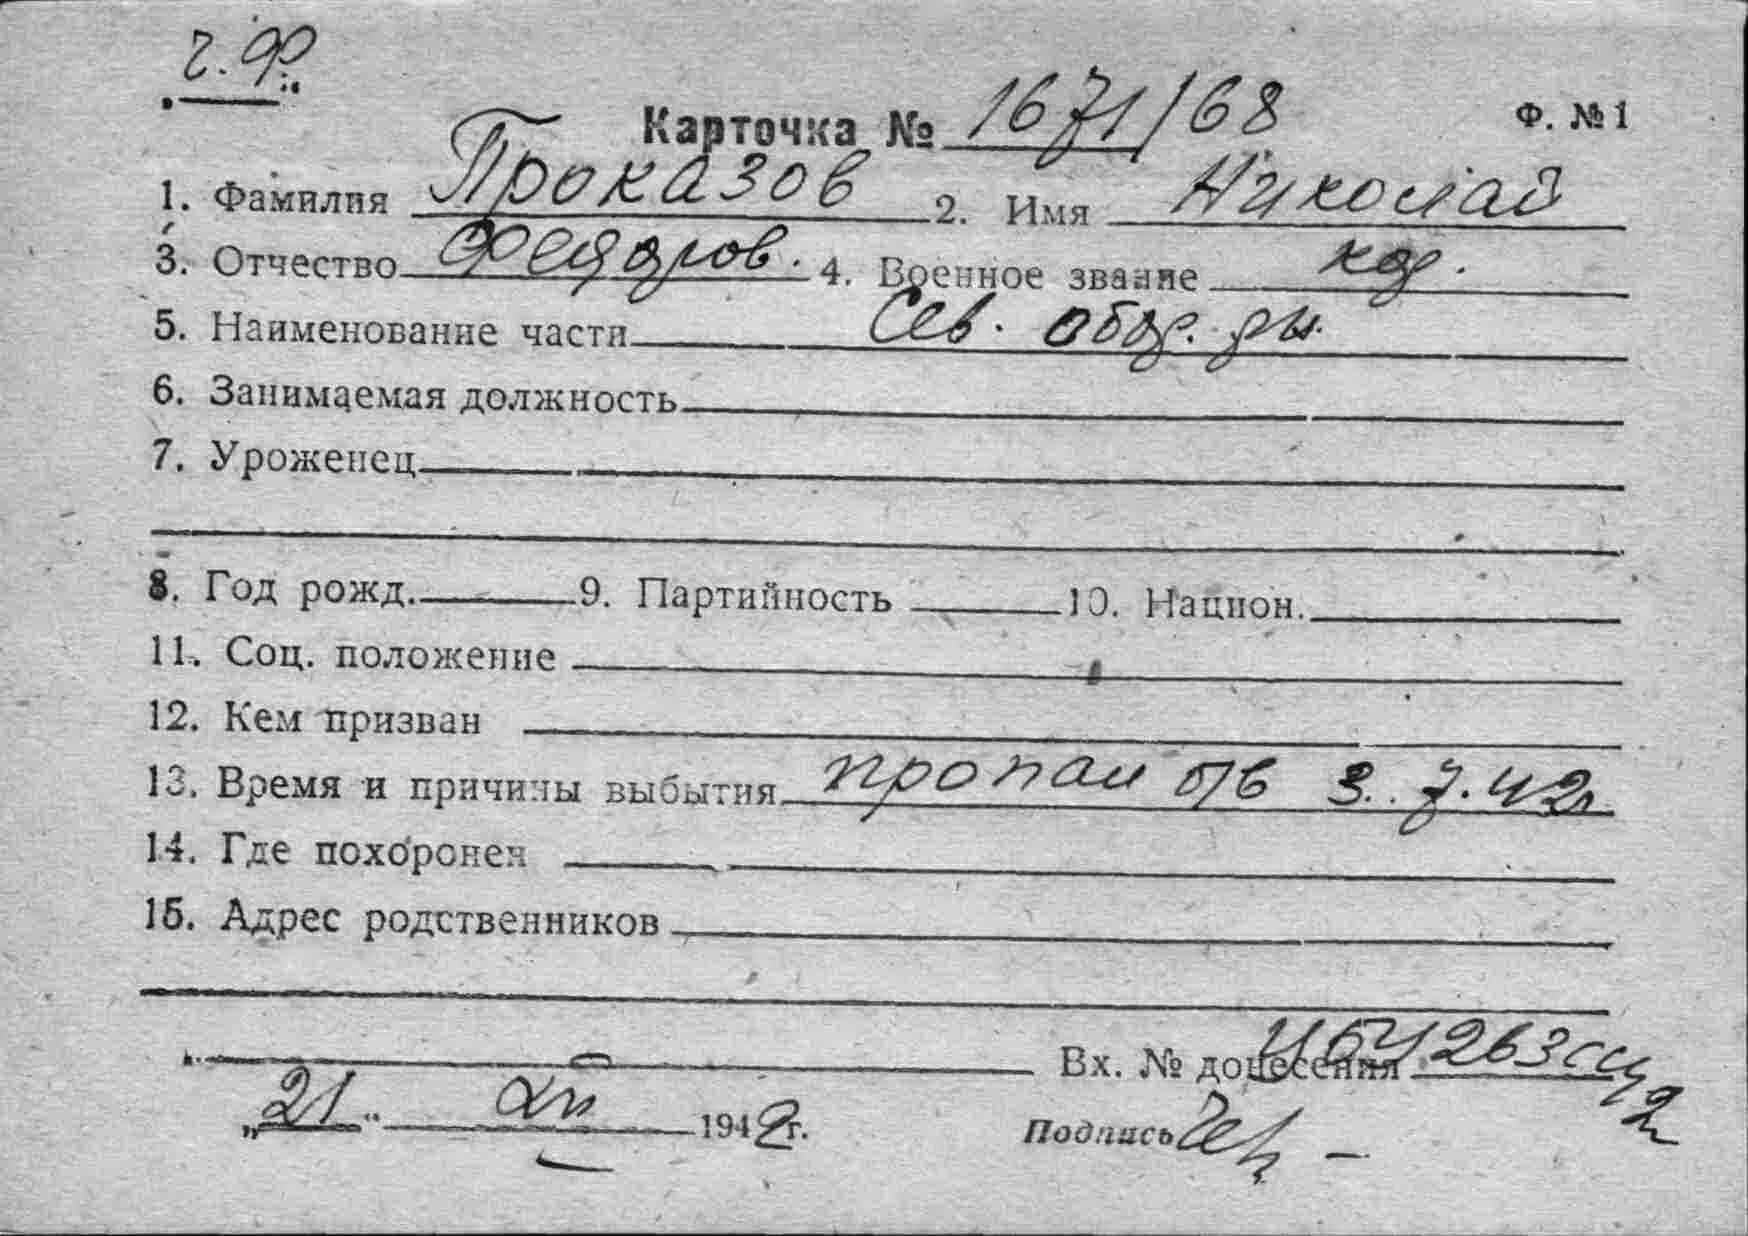 ч.ф.
Карточка № 1671/68 Ф. № 1
1. Фамилия Проказов 2. Имя Николай
3. Отчество Федоров. 4. Военное звание кр.
5. Наименование части Сев. обор. р-н.
6. Занимаемая должность
7. Уроженец
8. Год рожд. 9. Партийность 10. Национ.
11. Соц. положение
12. Кем призван
13. Время и причины выбытия пропал б/в 3.7.42г.
14. Где похоронен
15. Адрес родственников
Вх. № донесения
„21“ XII 1942г. Подпись